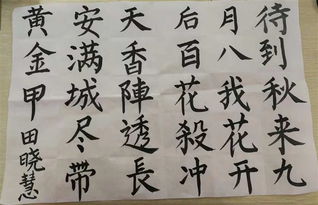 待到秋来九
月八我花开
后百花殺冲
天香陣透長
安满城尽带
黄金甲田晓慧